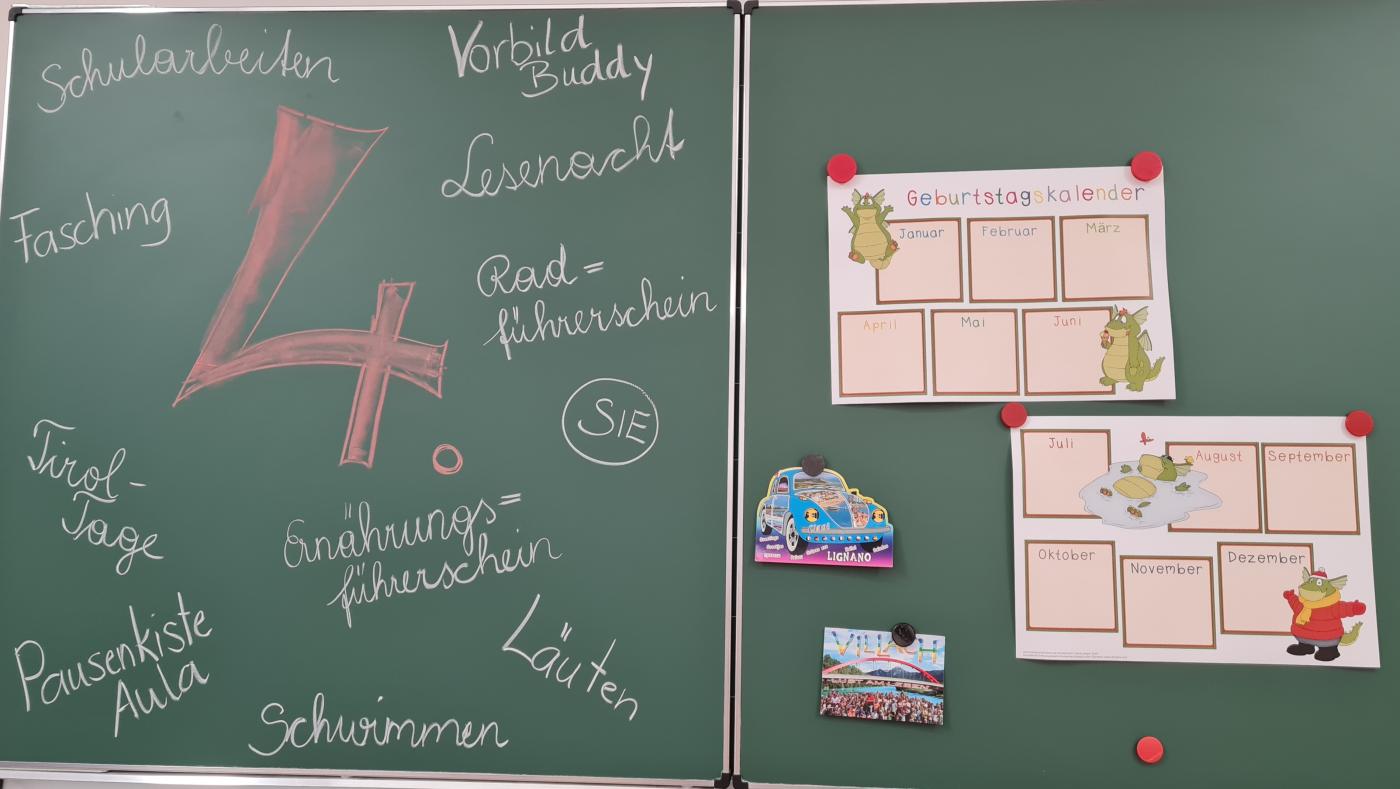 Schularbeiten
Vorbild
Buddy
Lesenacht
Fasching
4.
Rad=
führerschein
SIE
Tirol-
Tage
Ernährungs=
führerschein
Pausenkiste
Aula
Läuten
Schwimmen
Geburtstagskalender
Januar Februar März
April Mai Juni
Juli August September
Oktober November Dezember
LIGNANO
VILLACH
LUST AM LEBEN